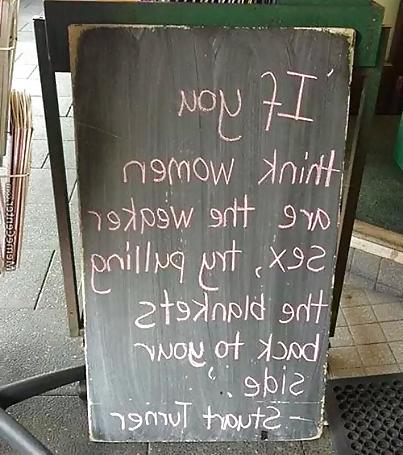 'If you
think women
are the weaker
sex, try pulling
the blankets
back to your
side.'
- Stuart Turner
MEMECENTER.COM